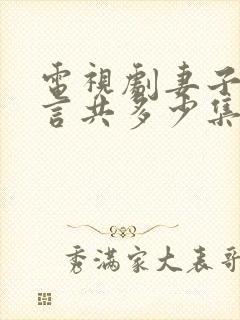 電視劇妻子
言共多少集
秀滿家大表哥